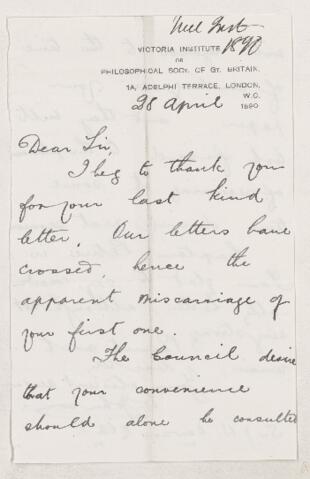 Vict Inst
1890
VICTORIA INSTITUTE
OR
PHILOSOPHICAL SOCY. OF GT. BRITAIN.
1A, ADELPHI TERRACE, LONDON,
W.C.
28 April 1890
Dear Sir,
I beg to thank you
for your last kind
letter. Our letters have
crossed, hence the
apparent miscarriage of
your first one.
The Council desire
that your convenience
should alone be consulted